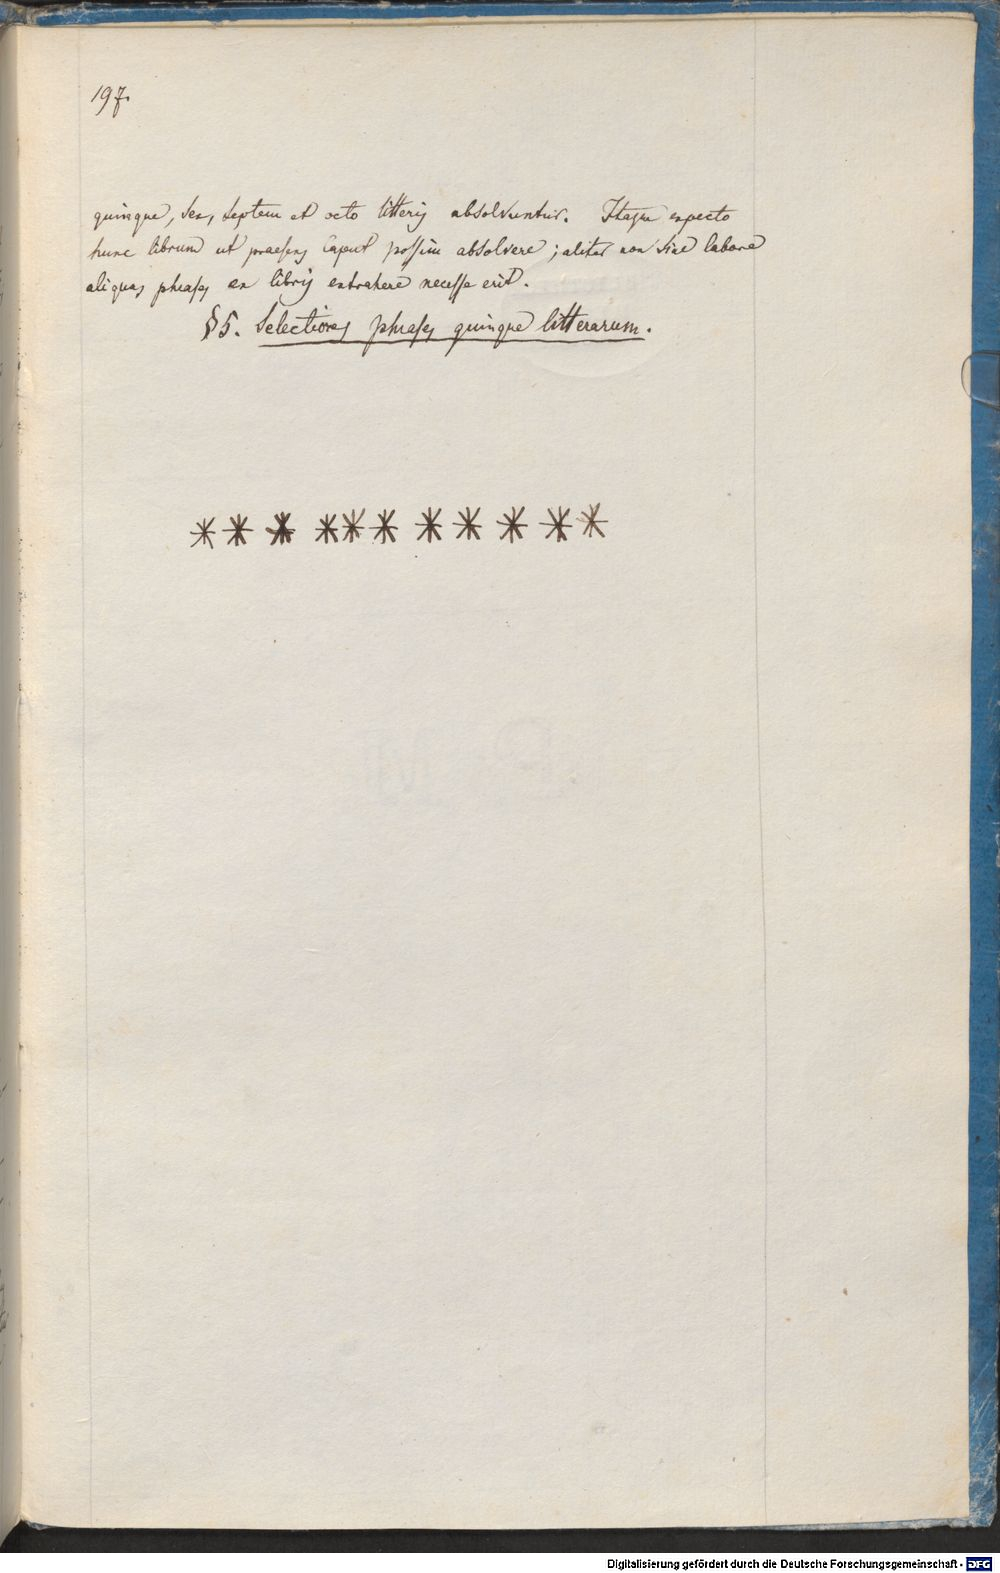 197.
quinque, sex, septem et octo litteris absolvuntur. Itaque expecto
hunc librum ut praesens caput possim absolvere; aliter non sine labore
aliquas phrases ex libris extrahere necesse erit.
§ 5. Selectiores phrases quinque litterarum.
* * * * * * * * * * *
Digitalisierung gefördert durch die Deutsche Forschungsgemeinschaft - DFG